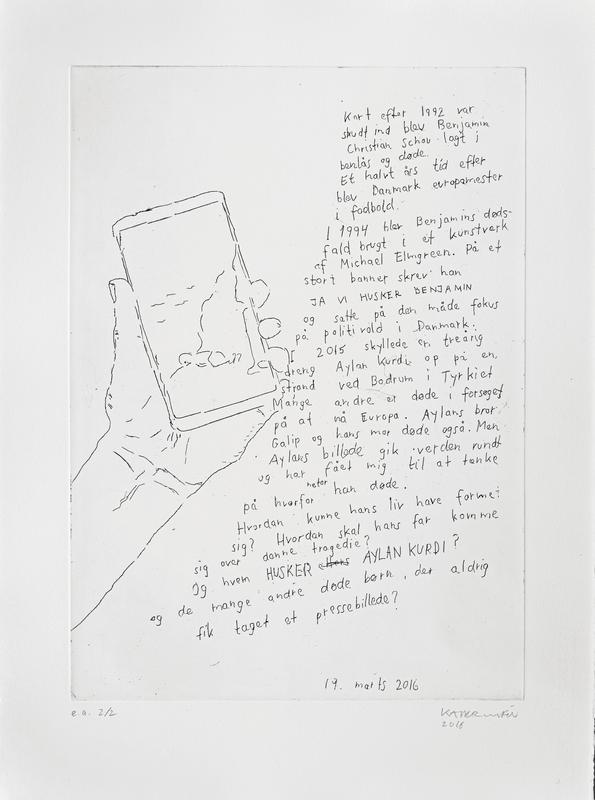 Kort efter 1992 var
skudt ind blev Benjamin
Christian Schou lagt i
benlås og døde.
Et halvt års tid efter
blev Danmark europamester
i fodbold.
I 1994 blev Benjamins døds-
fald brugt i et kunstværk
af Michael Elmgreen. På et
stort banner skrev han
JA VI HUSKER BENJAMIN
og satte på den måde fokus
på politivold i Danmark.
I 2015 skyllede en treårig
dreng Aylan Kurdi op på en
strand ved Bodrum i Tyrkiet
Mange andre er døde i forsøget
på at nå Europa. Aylans bror
Galip og hans mor døde også. Men
Aylans billede gik verden rundt
og har fået mig til at tænke
på hvorfor han døde.
Hvordan kunne hans liv have formet
sig? Hvordan skal hans far komme
sig over denne tragedie?
Og hvem HUSKER AYLAN KURDI?
og de mange andre døde børn, der aldrig
fik taget et pressebillede?
19. marts 2016
e.a. 2/2
2016